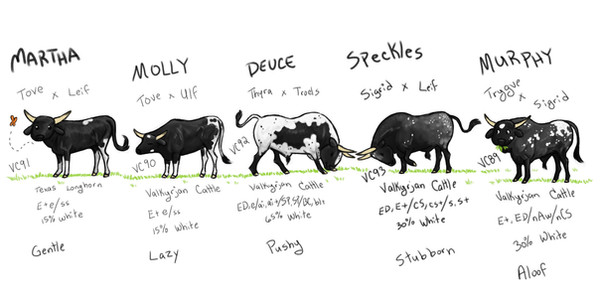 MARTHA
Tove x Leif
VC91
Texas Longhorn
E+e/ss
15% white
Gentle
MOLLY
Tove x Ulf
VC90
Valkyrjan Cattle
E+e/ss
15% White
Lazy
DEUCE
Thyra x Troels
VC92
Valkyrjan Cattle
65% White
Pushy
Speckles
Sigrid x Leif
VC93
Valkyrjan Cattle
30% White
Stubborn
MURPHY
Trygve x Sigrid
VC89
Valkyrjan Cattle
E+,ED/nAw/nCS
30% White
Aloof